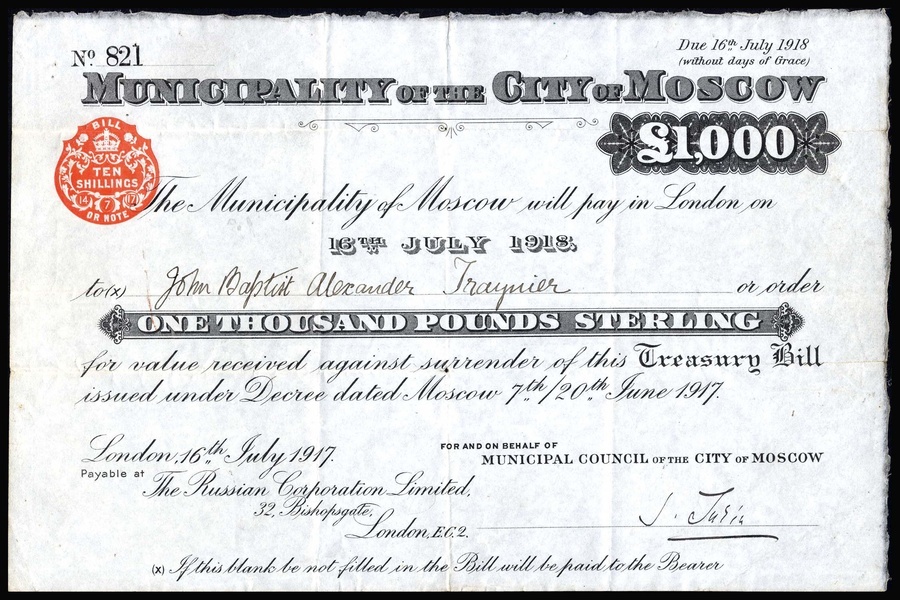 Nº 821
Due 16th July 1918
(without days of Grace)
MUNICIPALITY OF THE CITY OF MOSCOW
£1,000
BILL
TEN
SHILLINGS
14 7 17
OR NOTE
The Municipality of Moscow will pay in London on
16TH JULY 1918.
to (x) John Baptist Alexander Traynier or order
ONE THOUSAND POUNDS STERLING
for value received against surrender of this Treasury Bill
issued under Decree dated Moscow 7th/20th June 1917.
London, 16th July 1917.
FOR AND ON BEHALF OF
MUNICIPAL COUNCIL OF THE CITY OF MOSCOW
Payable at
The Russian Corporation Limited,
32, Bishopsgate,
London, E.C. 2.
(x) If this blank be not filled in the Bill will be paid to the Bearer